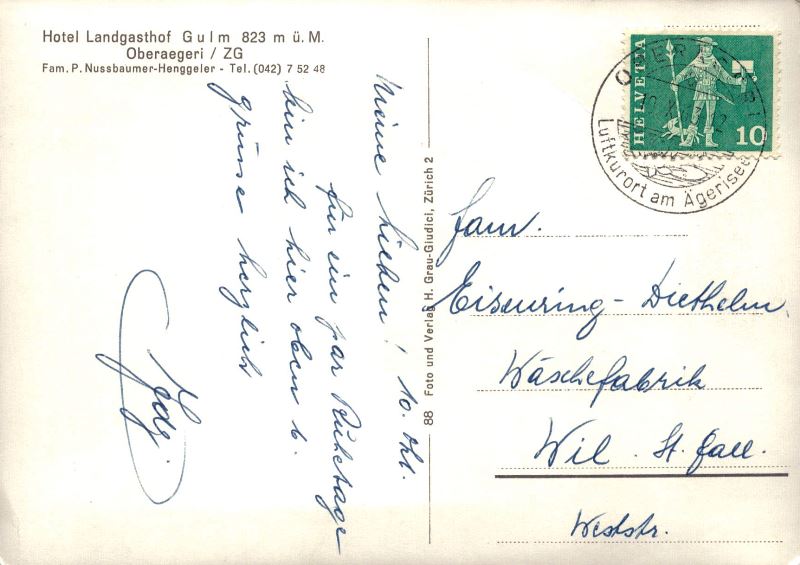 Hotel Landgasthof Gulm 823 m ü. M.
Oberaegeri / ZG
Fam. P. Nussbaumer-Henggeler - Tel. (042) 7 52 48
Meine Lieben! 10. Okt.
für ein par Ruhetage
bin ich hier oben &
grüsse herzlich
88 Foto und Verlag H. Grau-Giudici, Zürich 2
HELVETIA
10
Luftkurort am Ägerisee
Fam.
Eisenring-Diethelm
Wäschefabrik
Wil. St. Gall.
Weststr.